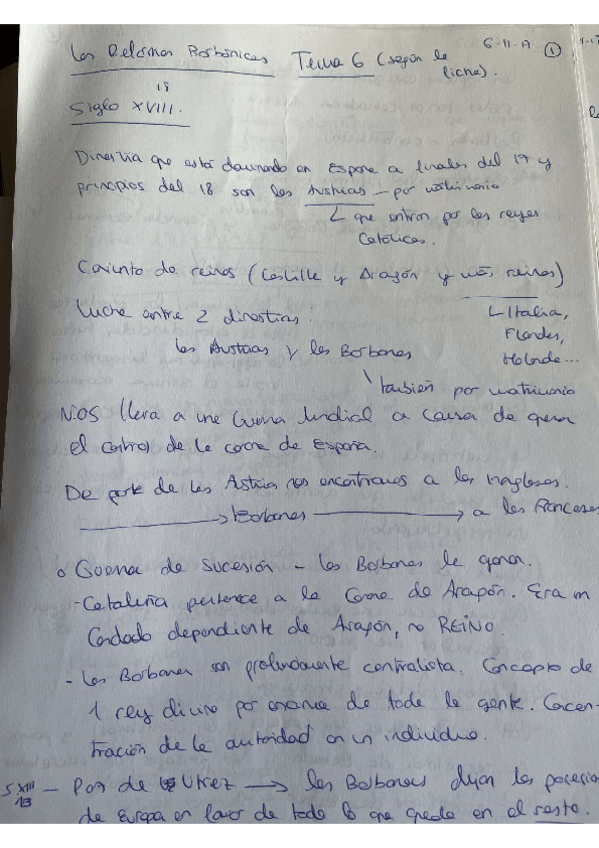 6-11-A ①
Las Reformas Borbónicas Tema 6 (según la
ficha).
18
Siglo XVIII.
Dinastía que está dominando en España a finales del 17 y
principios del 18 son los Austrias – por matrimonio
L que entran por los reyes
Católicos.
Conjunto de reinos (Castilla y Aragón y más reinos)
L Italia,
Flandes,
Holanda...
Lucha entre 2 dinastías:
los Austrias y los Borbones
\ también por matrimonio
NOS lleva a una Guerra Mundial a causa de querer
el control de la corona de España.
De parte de los Austrias nos encontramos a los Ingleses.
Borbones → a los Franceses
o Guerra de Sucesión – los Borbones la ganan.
- Cataluña pertenece a la Corona de Aragón. Era un
Condado dependiente de Aragón, no REINO.
- Los Borbones son profundamente centralista. Concepto de
1 rey divino por encima de toda la gente. Concen-
tración de la autoridad en un individuo.
S.XIII
18
– Paz de Utrez → los Borbones dejan las
de Europa en favor de todo lo que queda en el resto.